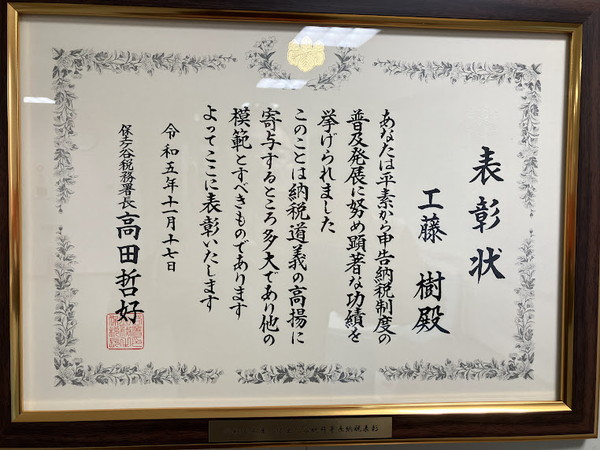 表彰状
工藤 樹殿
あなたは平素から申告納税制度の
普及発展に努め顕著な功績を
挙げられました
このことは納税道義の高揚に
寄与するところ多大であり他の
模範とすべきものであります
よってここに表彰いたします
令和五年十一月十七日
保土ケ谷税務署長 高田哲好
納税表彰